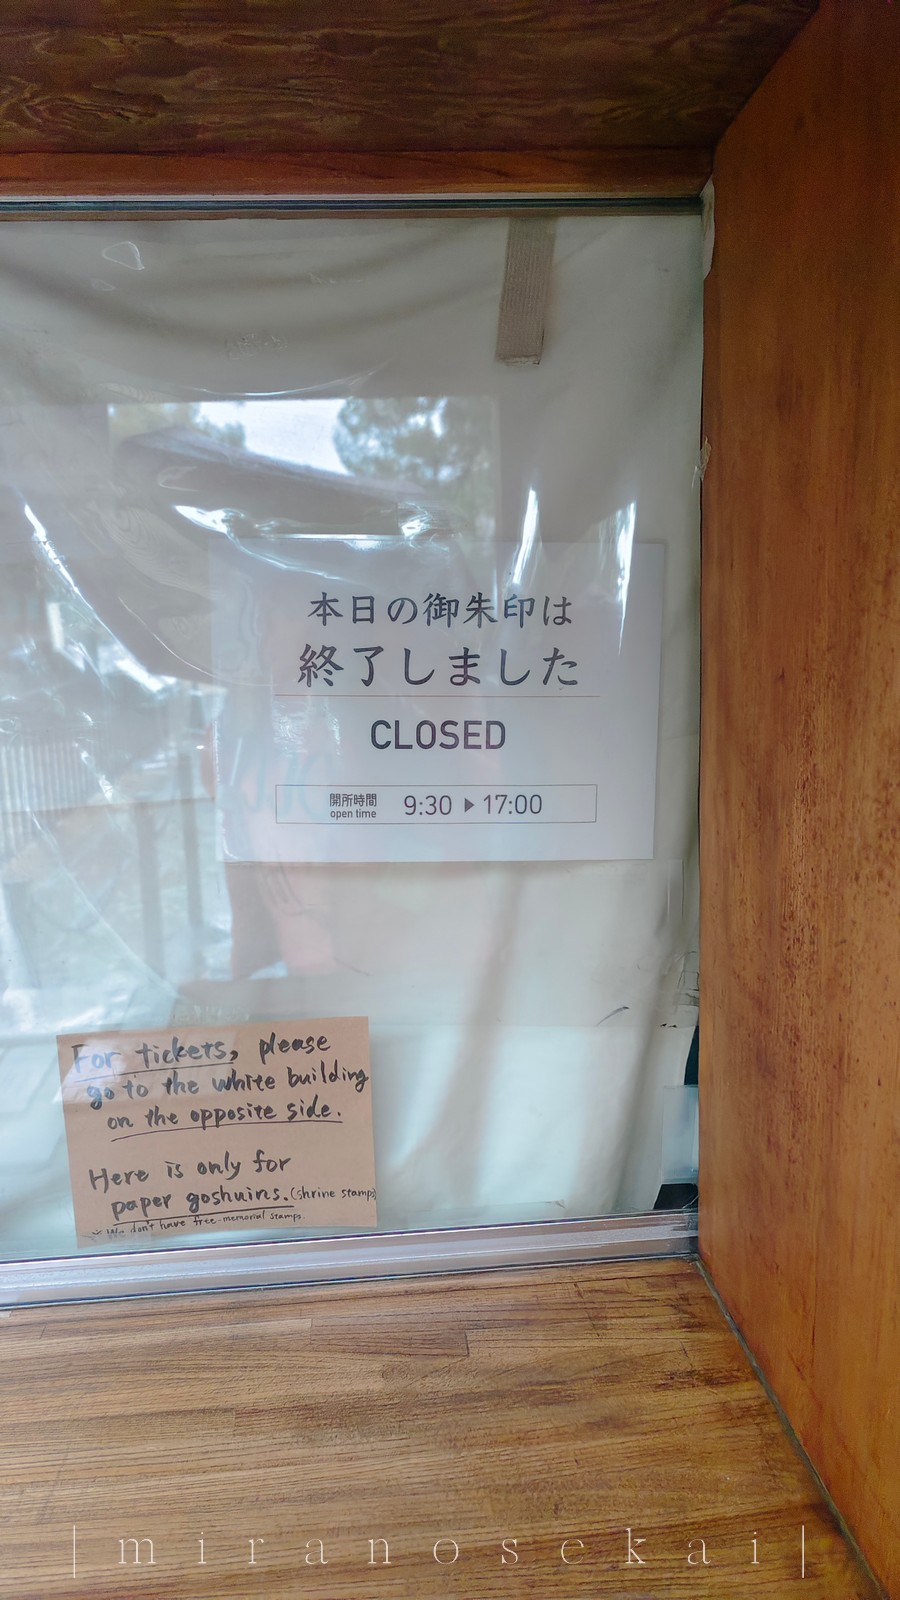 本日の御朱印は
終了しました
CLOSED
開所時間
open time
9:30 ▶ 17:00
For tickets, please
go to the white building
on the opposite side.
Here is only for
paper goshuins. (shrine stamps)
※ We don't have free-memorial stamps.
| m i r a n o s e k a i |